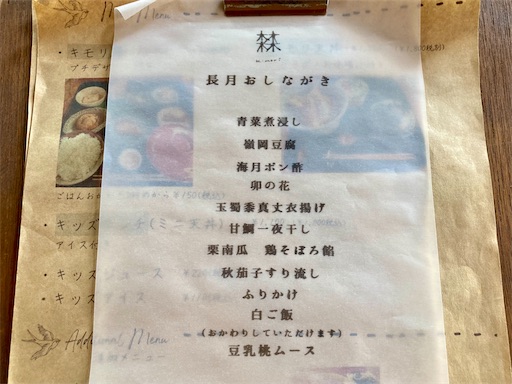 Menu
長月おしながき
青菜煮浸し
嶺岡豆腐
海月ポン酢
卯の花
玉蜀黍真丈衣揚げ
甘鯛一夜干し
栗南瓜 鶏そぼろ餡
秋茄子すり流し
ふりかけ
白ご飯
(おかわりしていただけます)
豆乳桃ムース
・キモリ
プチデザ
ごはんお
・キッズ
(ミニ天丼)
アイス付
・キッズジュース
・キッズアイス
Additional Menu
メニュー